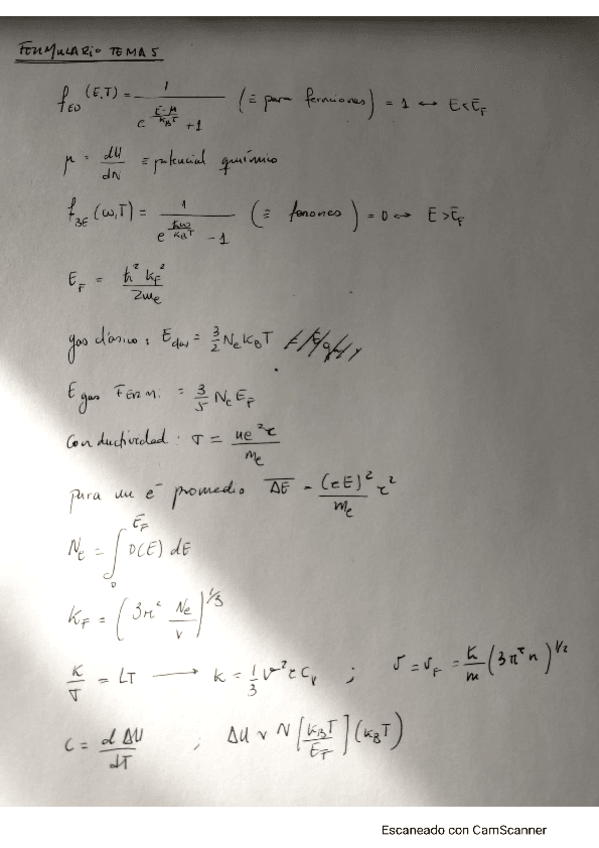 FORMULARIO TEMA 5
f_ED (E,T) = 1 / (e^((E-μ)/(k_B T)) + 1) (≡ para fermiones) = 1 ↔ E<E_F
μ = dU/dN ≡ potencial químico
f_BE (ω,T) = 1 / (e^(ħω/(k_B T)) - 1) (≡ fonones) = 0 ↔ E>E_F
E_F = ħ² k_F² / 2m_e
gas clásico: E_clas = 3/2 N_e k_B T
E gas FERMI = 3/5 N_e E_F
Conductividad: σ = ne²τ / m_e
para un e⁻ promedio ΔE = (eE)² τ² / m_e
N_e = ∫_0^(E_F) D(E) dE
k_F = (3π² N_e/V)^(1/3)
K/σ = LT → K = 1/3 v² τ C_v ; v = v_F = ħ/m (3π² n)^(1/2)
C = d ΔU / dT ; ΔU ~ N [k_B T / E_F] (k_B T)
Escaneado con CamScanner